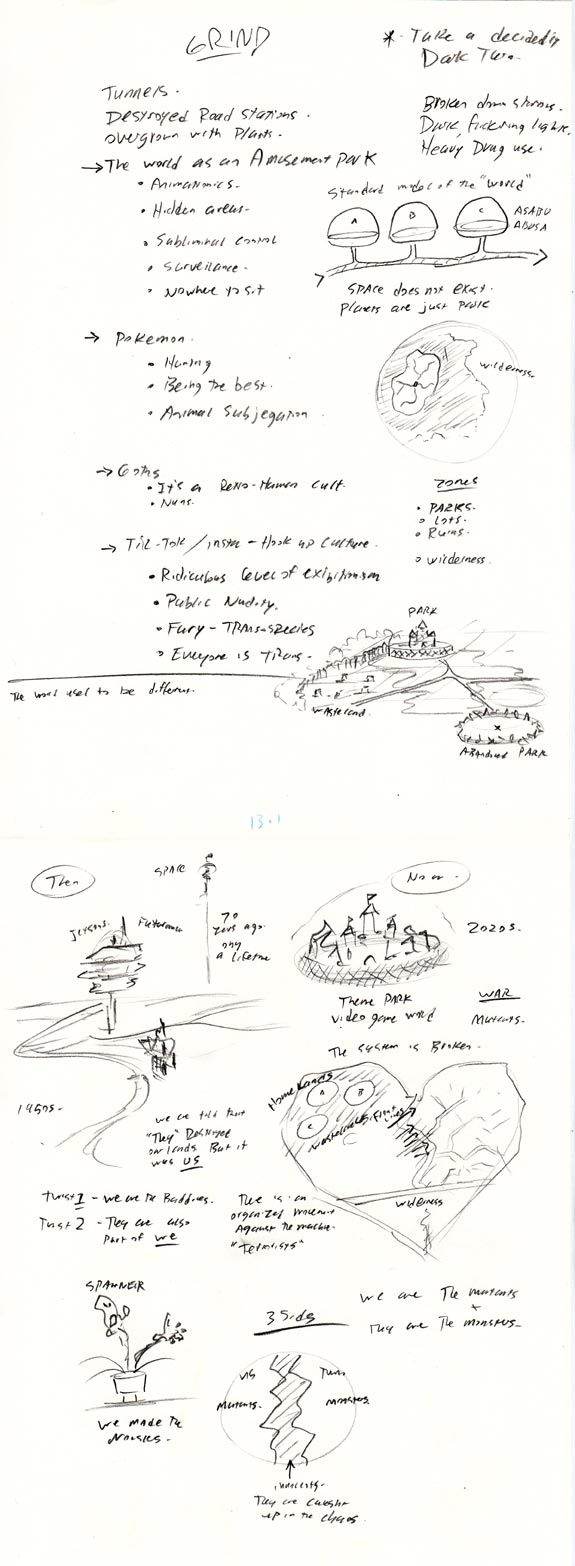 GRIND
* Take a decidedly
Dark Turn.
Tunnels.
Destroyed Road Stations.
overgrown with Plants.
Broken down stores.
Dark, flickering lights.
Heavy Drug use.
→ The world as an Amusement Park
• Animatronics.
• Hidden areas.
• Subliminal control
• Surveilance.
• Nowhere to sit
Standard model of the "world"
A
B
C
SPACE does not exist.
Planets are just
→ Pokemon.
• Being the best.
• Animal Subjegation
wilderness.
→ Goths
• It's a Retro-Human Cult.
• Nuns.
ZONES
• PARKS.
• Lots.
• Ruins.
• wilderness.
→ Tik-Tok / insta - Hook up Culture.
• Ridiculous level of exibitionism
• Public Nudity.
• Fury - Trans-species
• Everyone is Titans.
PARK
The world used to be different.
wasteland.
Abandoned PARK
13.1
Then
SPACE
Jetsons.
Futurama
70
years ago.
only
a lifetime
Now.
2020s.
Theme PARK
Video game world
WAR
Mutants.
The system is Broken.
1950s.
we are told that
"They" Destroyed
our lands But it
was US
Homelands
A
B
C
wilderness
Twist 1 - we are the Baddies.
Twist 2 - They are also
Part of we
There is an
organized movement
Against the machine.
SPAWNER
we made the
3 Sides
we are The mutants
+
They are The monsters.
US
Mutants.
Them
monsters.
innocents.
They are caught
up in the chaos.